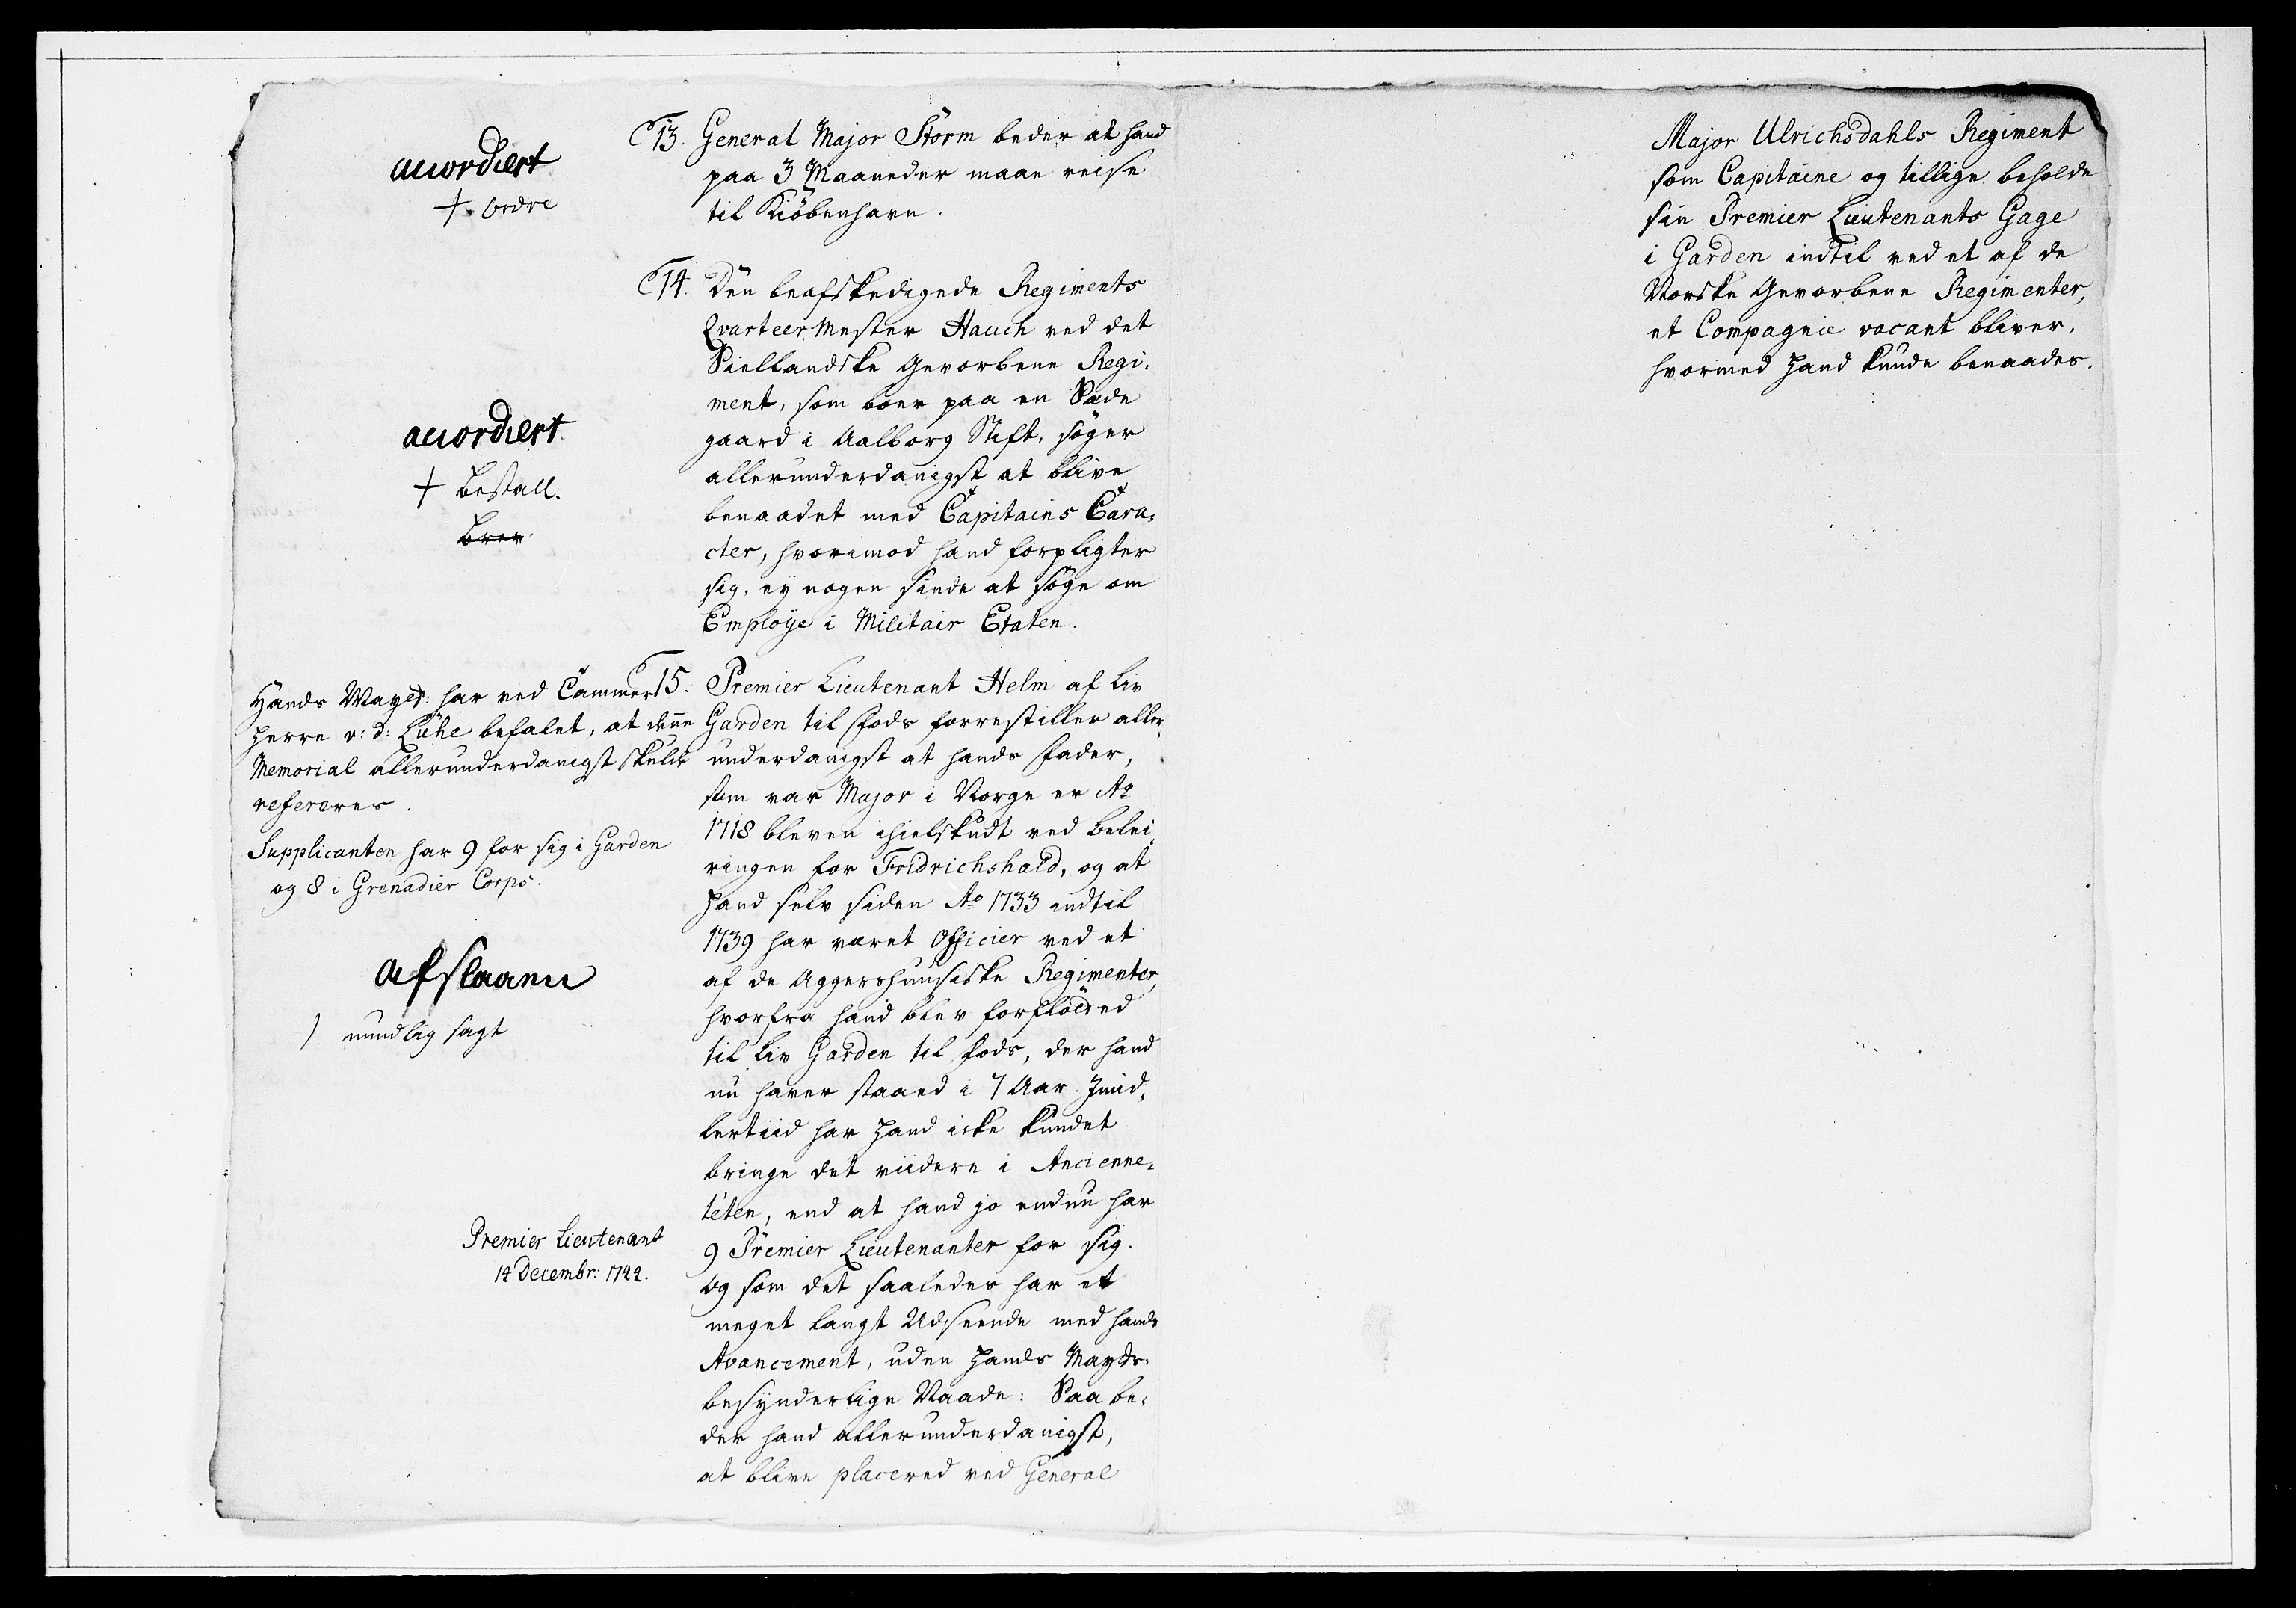 13. General Major Storm beder at hand
paa 3 Maaneder maae reise
til Kiöbenhavn.
accordiert
+ Ordre
14. Den beafskedigede Regiments
Qvarteer Mester Hauch ved det
Siellandske Gevorbene Regi-
ment, som boer paa en Sæde
gaard i Aalborg Stift, söger
allerunderdanigst at blive
benaadet med Capitains Cara-
cter, hvorimod hand forpligter
sig, ey nogen sinde at söge om
Employe i Militair Etaten.
accordiert
+ Bestall.
15. Premier Lieutenant Helm af Liv
Garden til Fods forrestiller aller-
underdanigst at hands Fader,
som var Major i Norge er Ao
1718 bleven ihielskudt ved Belei-
ringen for Fridrichshald, og at
hand selv siden Ao 1733 indtil
1739 har været Officier ved et
af de Aggershuusiske Regimenter,
hvorfra hand blev forflötted
til Liv Garden til Fods, der hand
nu haver staaed i 7 Aar. Imid-
lertiid har hand icke kundet
bringe det viidere i Ancienne-
téten, end at hand jo endnu har
9 Premier Lieutenanter for sig.
Og som det saaledes har et
meget langt Udseende med hands
Avancement, uden hands Mayts.
besynderlige Naade: Saa be-
der hand allerunderdanigst,
at blive placered ved General
Hands Mayst: har ved Cammer
herre v: d: Lühe befalet, at denne
Memorial allerunderdanigst skulde
refereres.
Supplicanten har 9 for sig i Garden
og 8 i Grenadier Corps.
afslaaen
) mundlig sagt
Premier Lieutenant
14 Decembr: 1742.
Major Ulrichsdahls Regiment
som Capitaine og tillige beholde
sin Premier Lieutenants Gage
i Garden indtil ved et af de
Norske Gevorbene Regimenter,
et Compagnie vacant bliver,
hvormed hand kunde benaades.